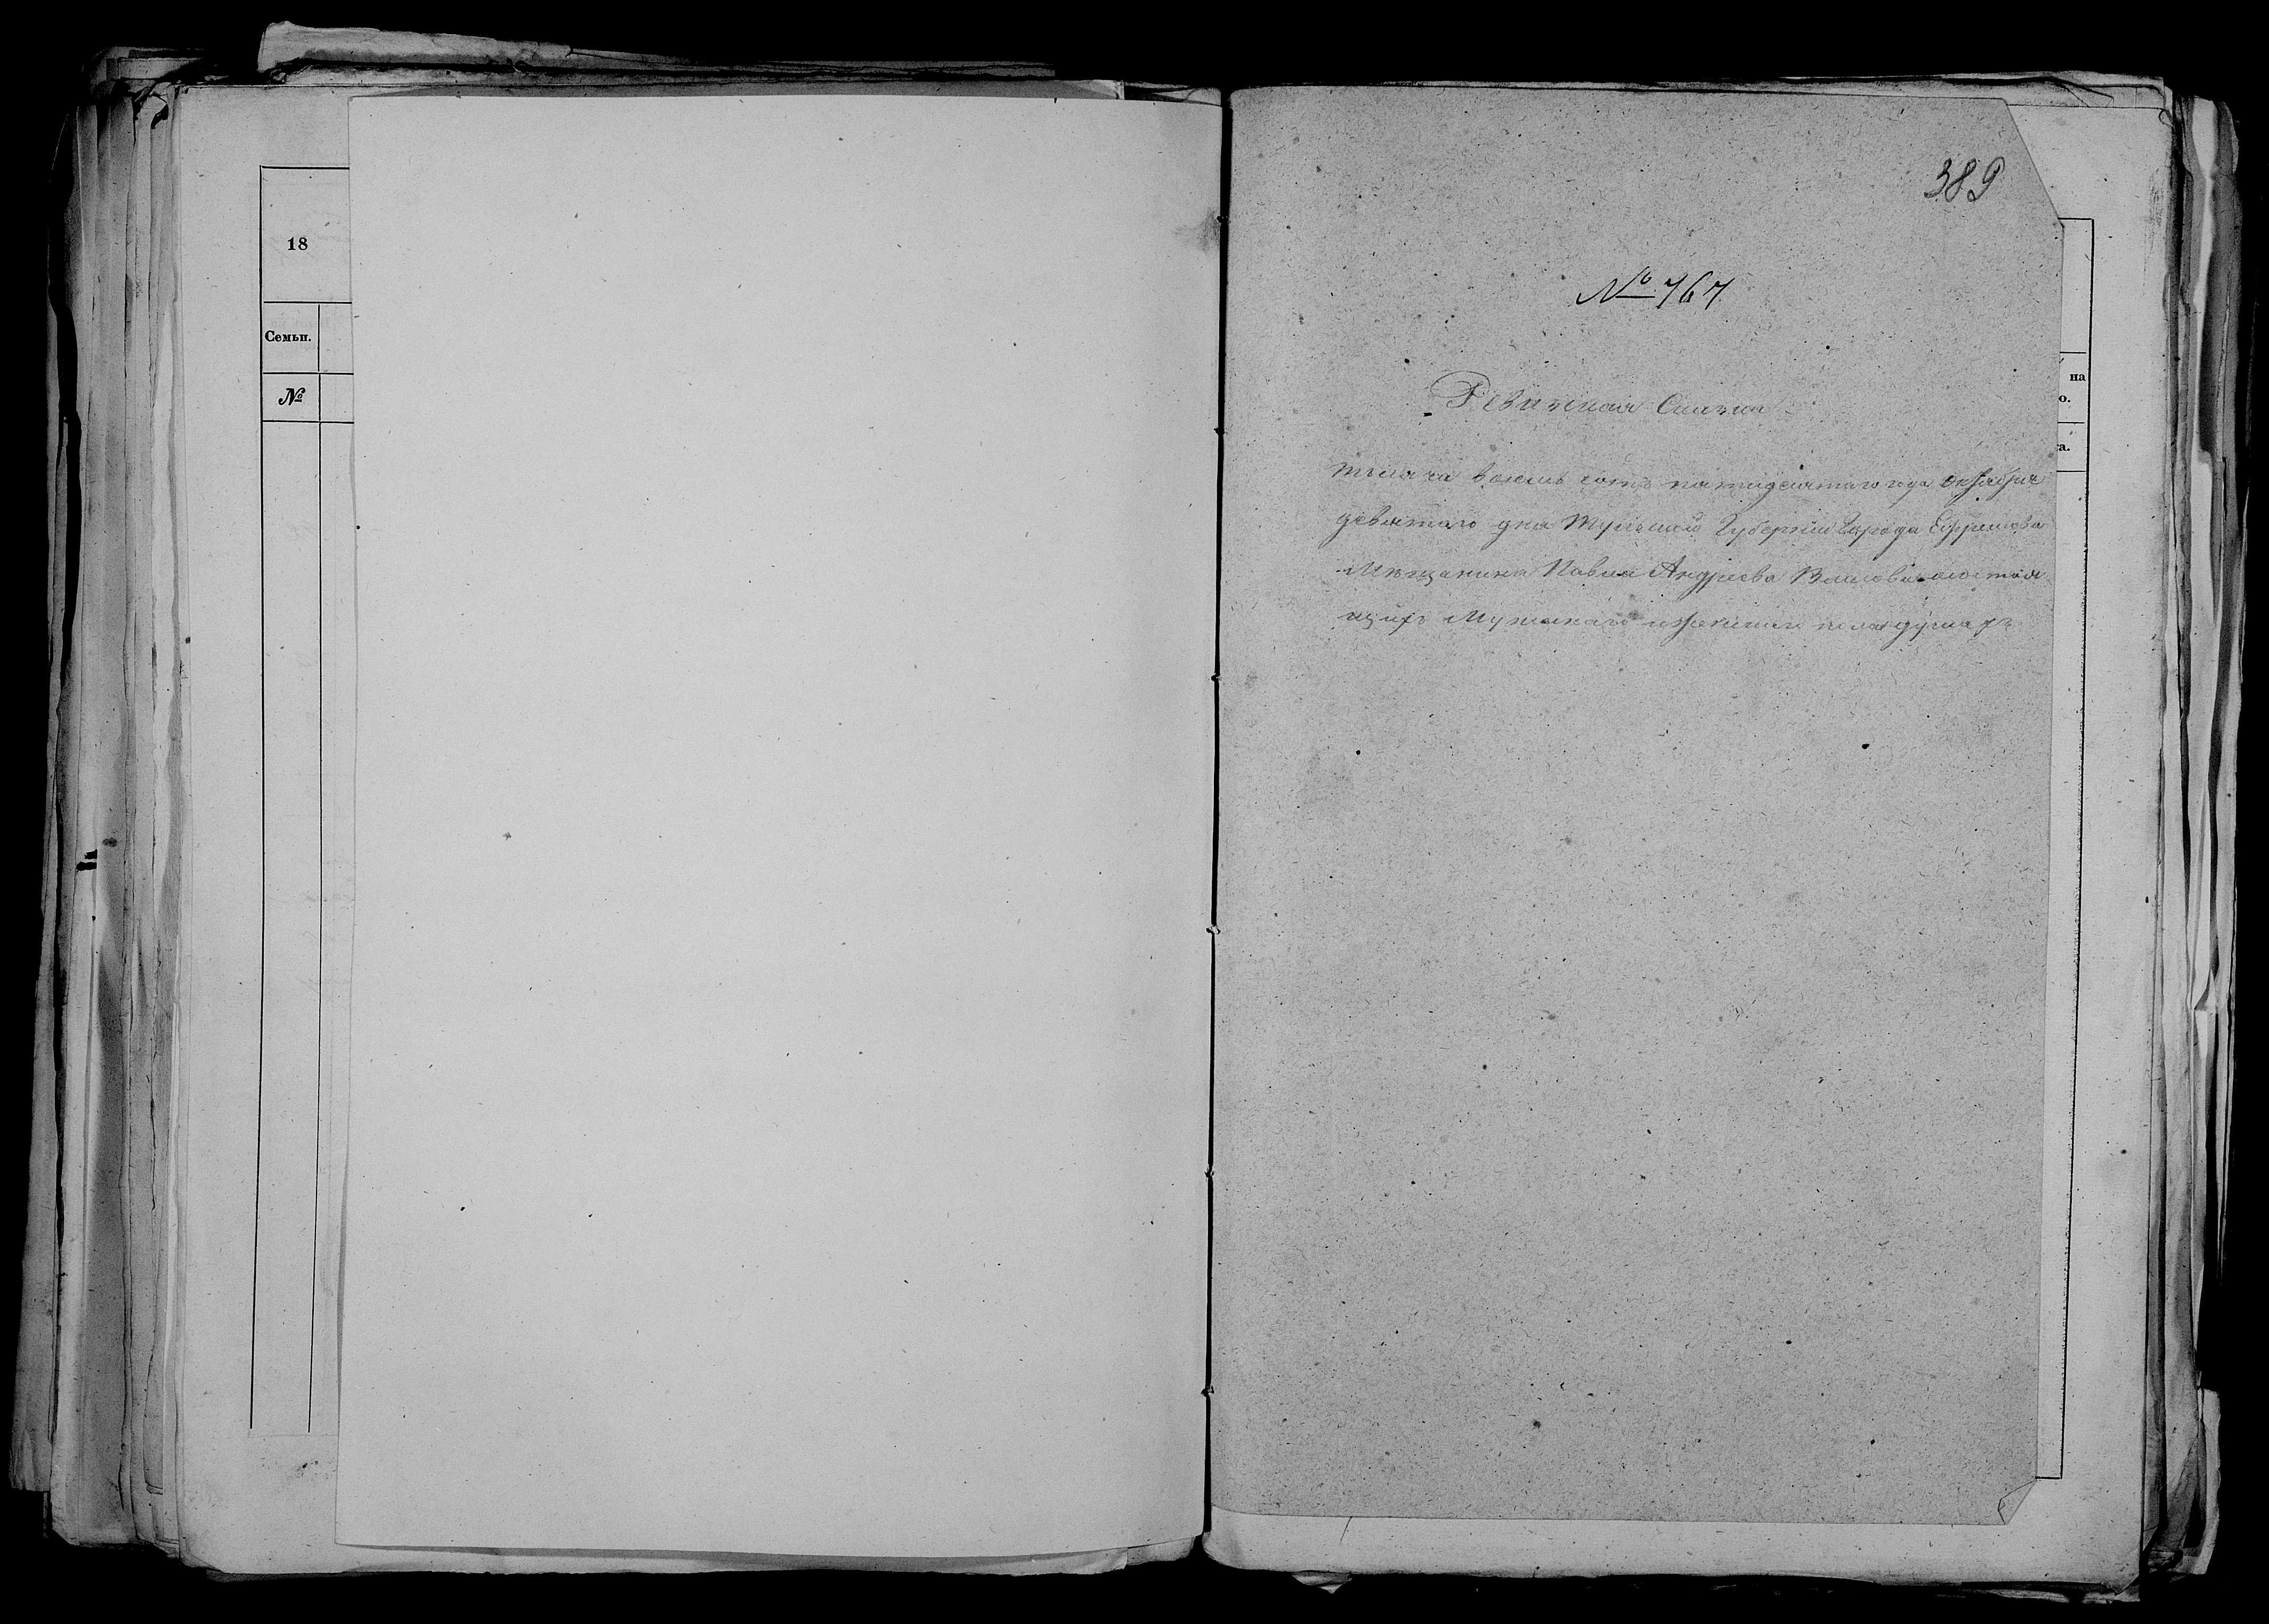 18
Семьи.
№
389
№ 767
на
о.
а.
Ревизская Сказка
тысяча восемь сотъ пятидесятаго года октября
девятаго дня Тульской Губернии Города Ефремова
Мещанина Павла Андреева о состоя
щихъ Мужскаго и женскаго пола душахъ